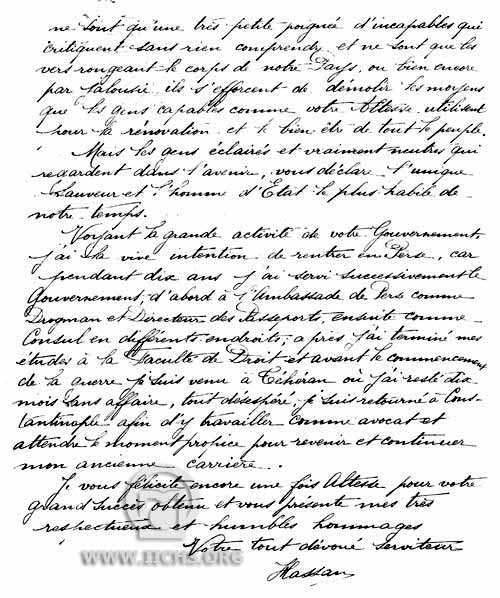 ne sont qu'une très petite poignée d'incapables qui
critiquent sans rien comprendre et ne sont que les
vers rongeant le corps de notre Pays, ou bien encore
par jalousie, ils s'efforcent de démolir les moyens
que les gens capables comme votre Altesse utilisent
pour la rénovation et le bien être de tout le peuple.
Mais les gens éclairés et vraiment neutres qui
regardent dans l'avenir, vous déclare l'unique
Sauveur et l'homme d'Etat le plus habile de
notre temps.
Voyant la grande activité de votre Gouvernement,
j'ai la vive intention de rentrer en Perse, car
pendant dix ans j'ai servi successivement le
Gouvernement, d'abord à l'Ambassade de Perse comme
Drogman et Directeur des Passeports, ensuite comme
Consul en différents endroits; après j'ai terminé mes
études à la Faculté de Droit et avant le commencement
de la guerre je suis venu à Téhéran où j'ai resté dix
mois sans affaire, tout désespéré, je suis retourné à Cons-
tantinople afin d'y travailler comme avocat et
attendre le moment propice pour revenir et continuer
mon ancienne carrière.
Je vous félicite encore une fois Altesse pour votre
grand succès obtenu et vous présente mes très
respectueux et humbles hommages
Votre tout dévoué Serviteur
Hassan
WWW.IICHS.ORG